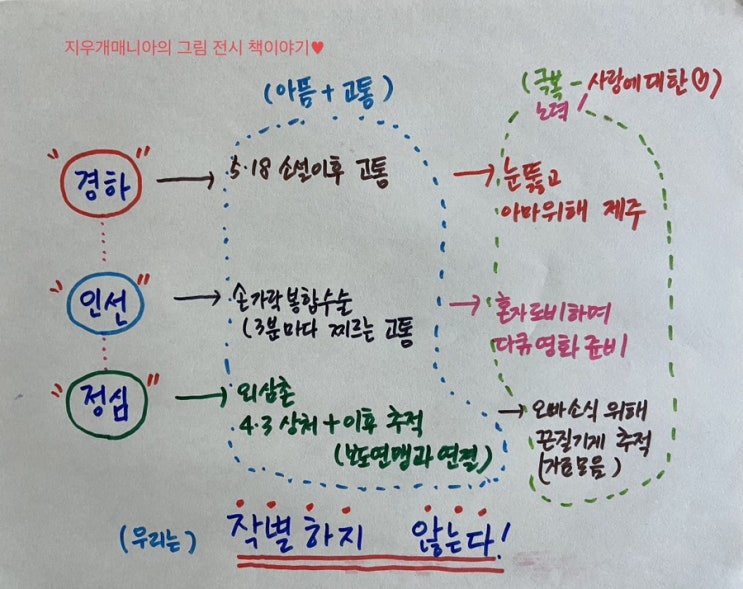 지우개매니아의 그림 전시 책이야기♥
(아픔 + 고통)
(극복 - 사랑에대한
노력!
"경하" → 5·18 소설이후 고통 → 눈뚫고
아마위해 제주
"인선" → 손가락봉합수술 → 혼자로비하며
(3분마다 찌르는 고통
다큐영화 준비
"정심" → 외삼촌
4·3 상처 + 이후 추적
(보도연맹과 연결)
→ 오빠소식 위해
끈질기게 추적
(자료모음)
(우리는) 작별하지 않는다!